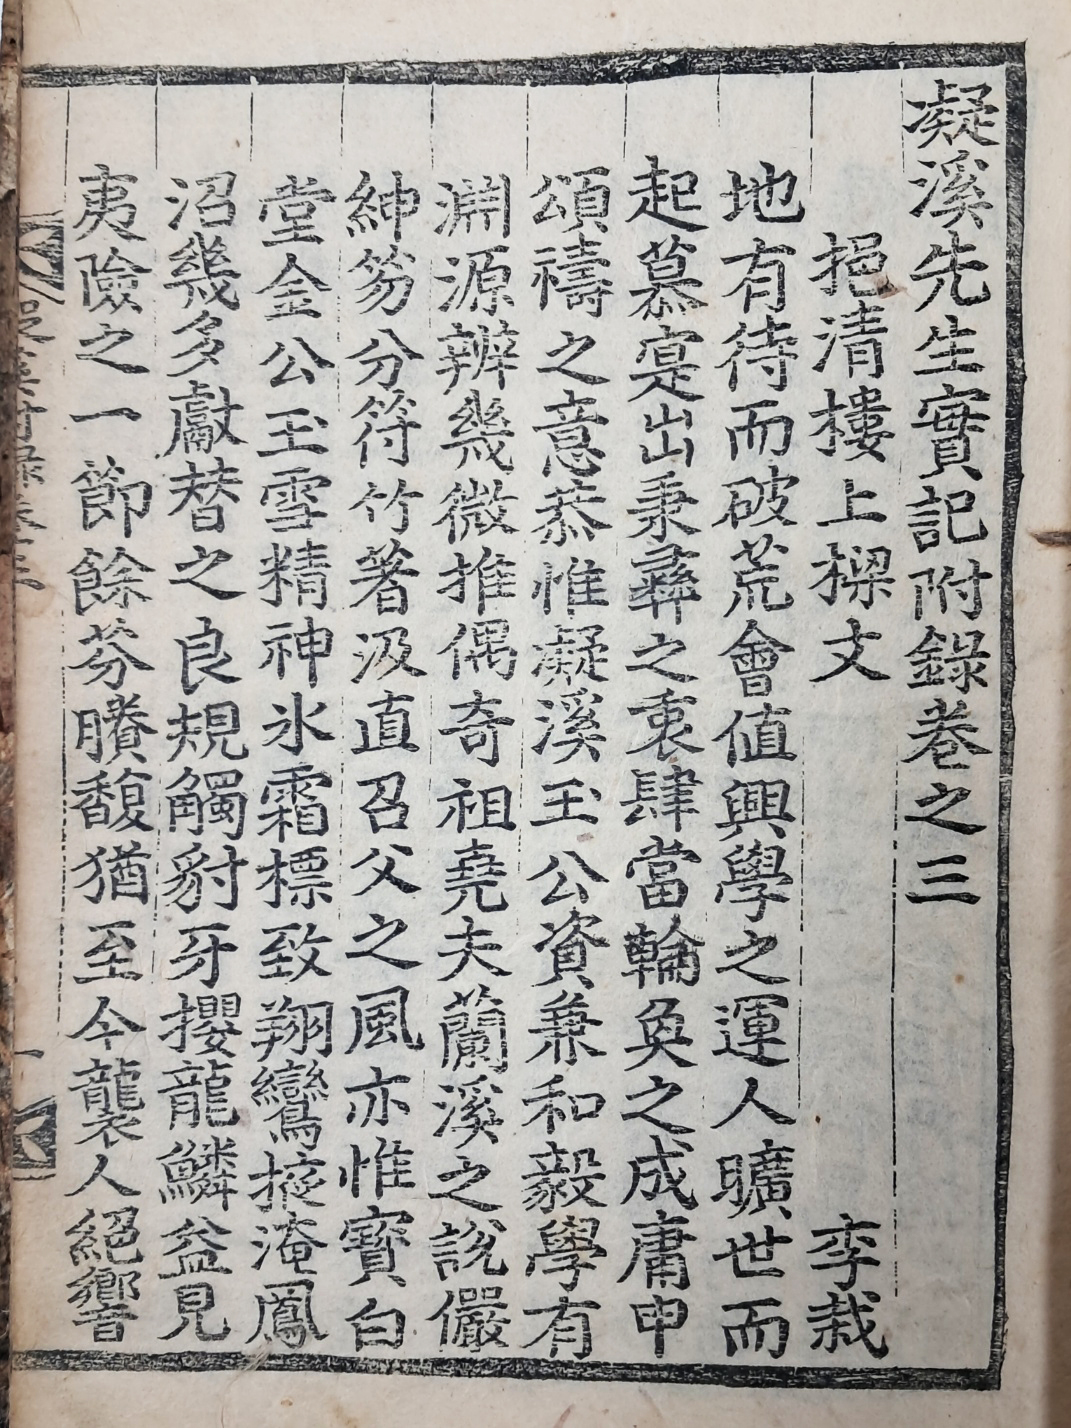 凝溪先生實記附錄卷之三
挹清樓上樑文 李栽
地有待而破荒會值興學之運人曠世而
起慕寔出秉彝之衷肆當輪奐之成庸申
頌禱之意恭惟凝溪玉公資兼和毅學有
淵源辨幾微推偶奇祖堯夫蘭溪之說儼
紳笏分符竹著汲直召父之風亦惟寶白
堂金公玉雪精神氷霜標致翔鸞掖淹鳳
沼幾多獻替之良規觸豺牙攖龍鱗益見
夷險之一節餘芬賸馥猶至今襲人絕響